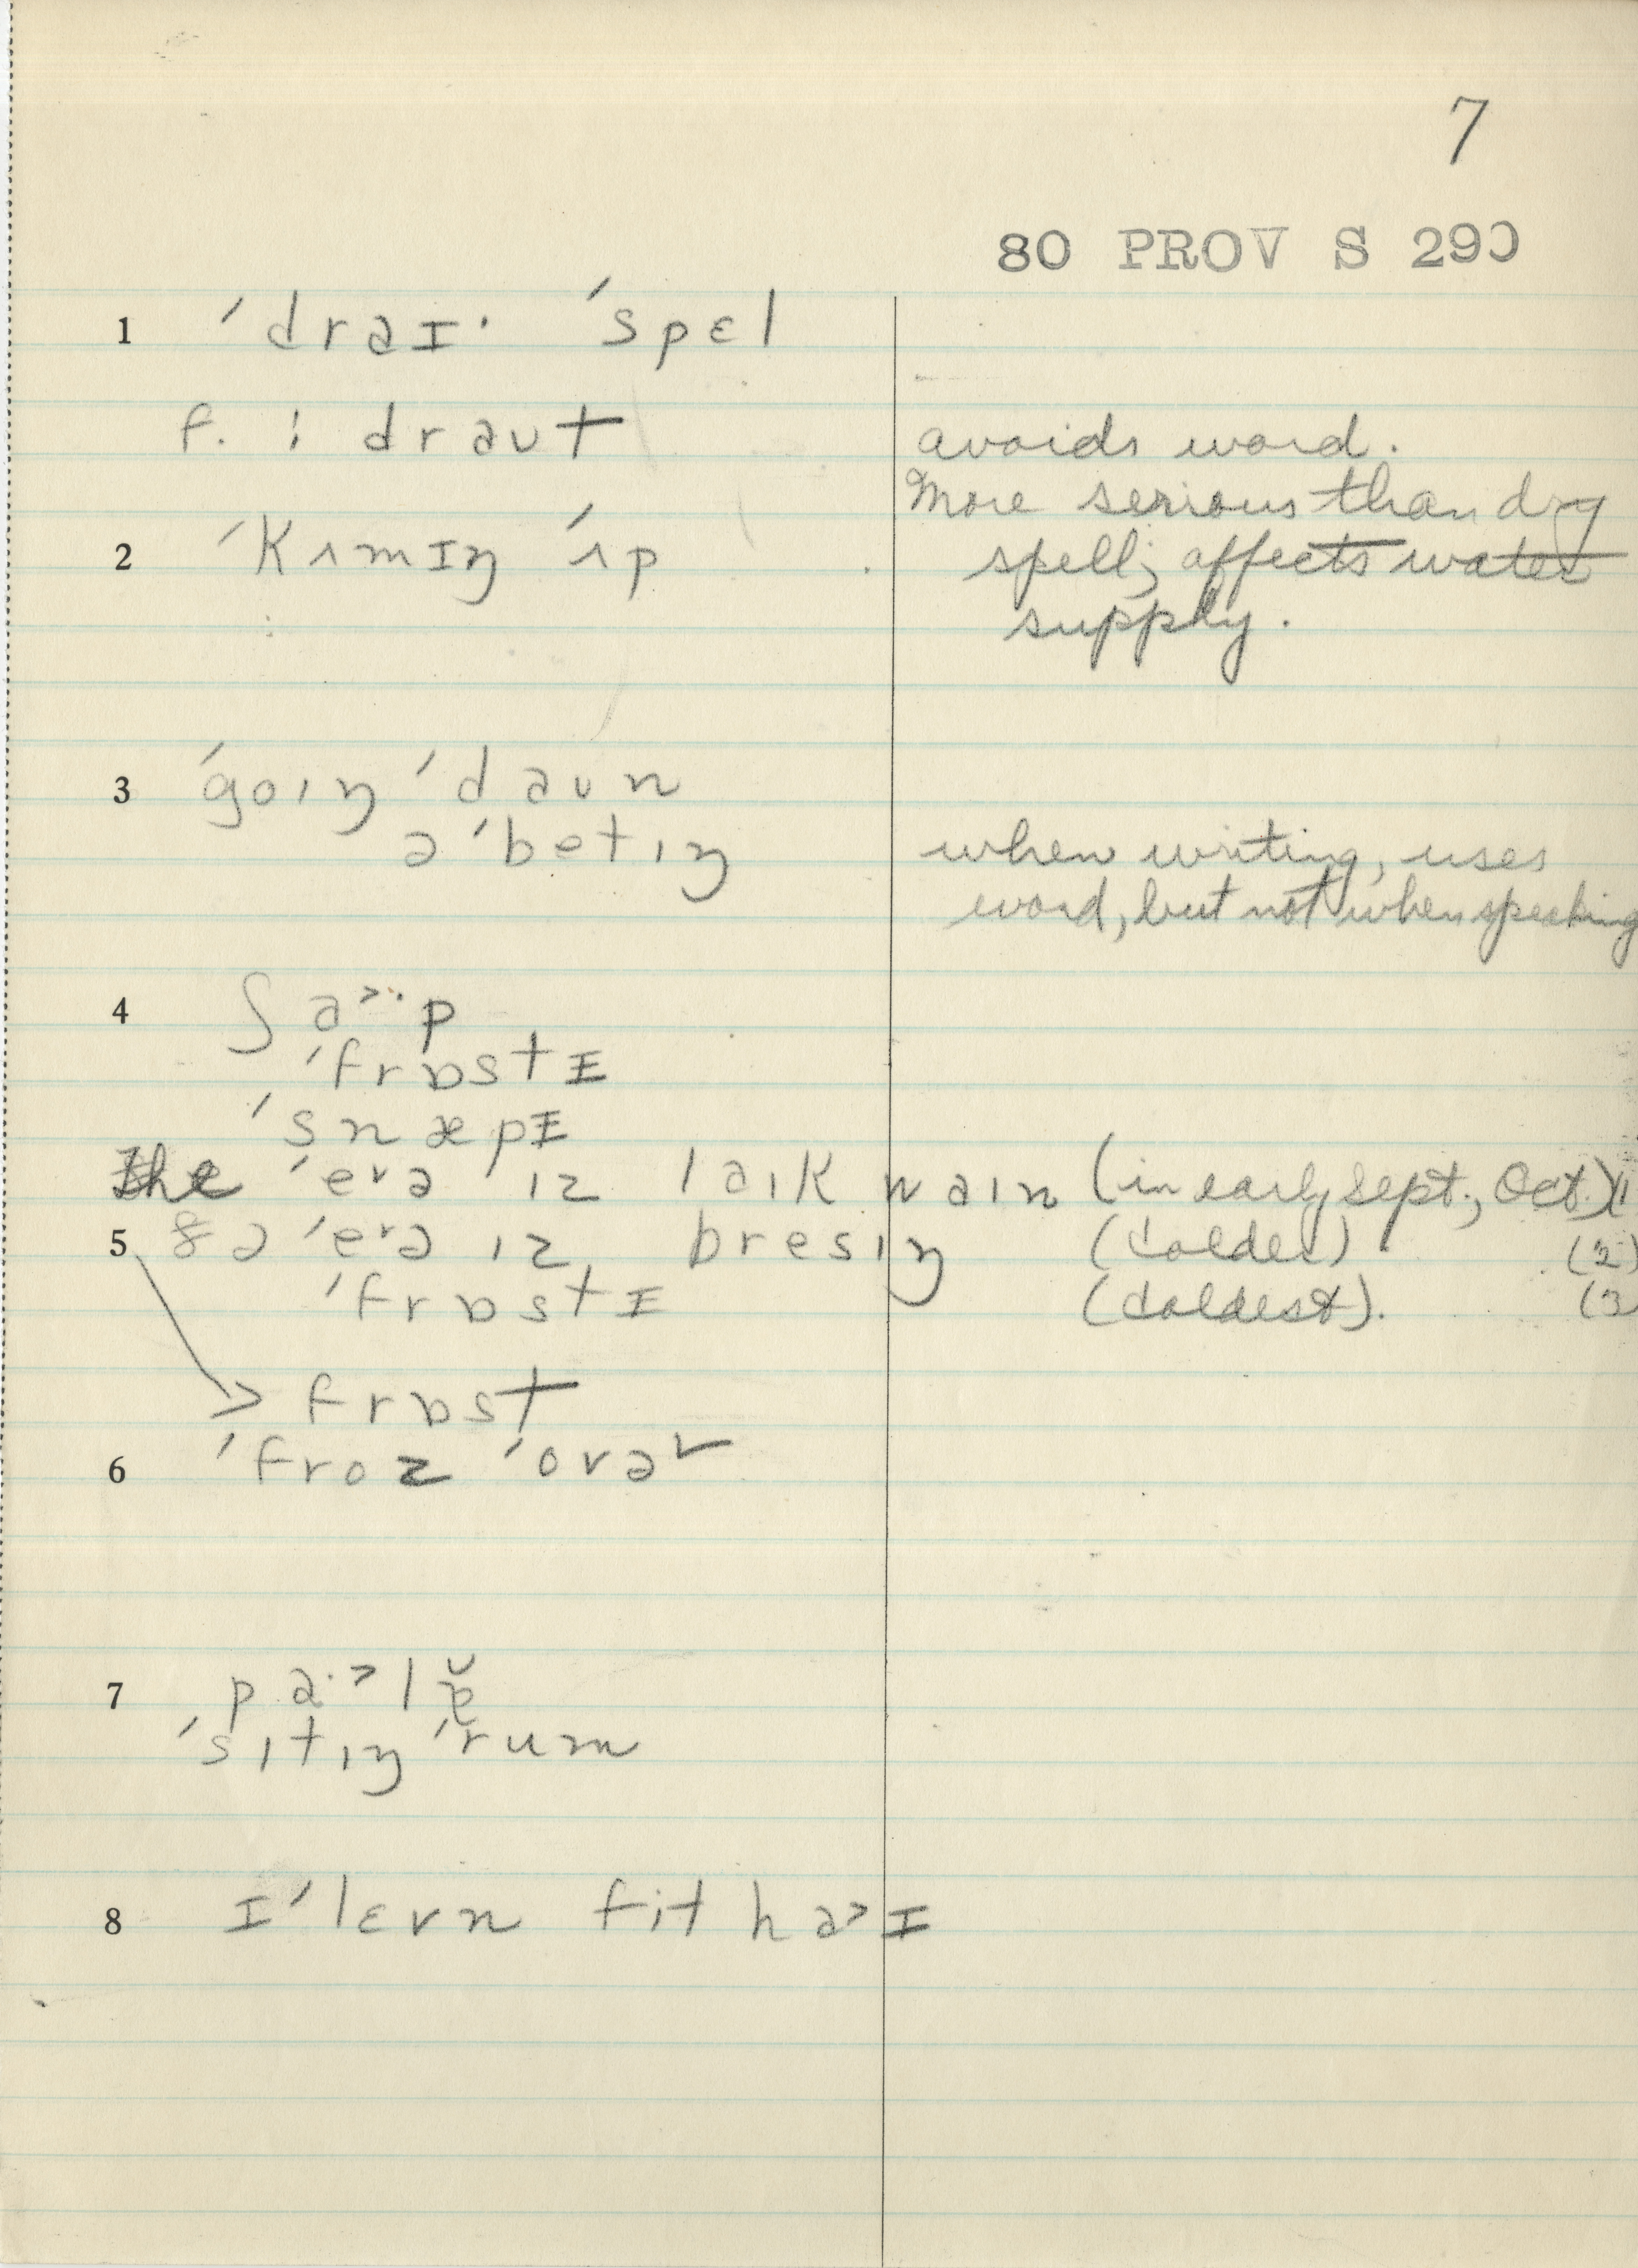 7
80 PROV S 290
1 ˈdraɪ· ˈspɛl
f. : draut avoids word.
More serious than dry
2 ˈkʌmɪŋ ˈʌp spell; affects water
supply.
3 ˈgoɪŋ ˈdaun
əˈbetɪŋ when writing, uses
word, but not when speaking
4 ʃa>·p
ˈfrɒstɪ
ˈsnæpɪ
The ˈeᵊrə ɪz laɪk waɪn (in early Sept., Oct.) (1
5 ðə ˈeᵊrə ɪz bresɪŋ (colder). (2)
ˈfrɒstɪ (coldest). (3
> frɒst
6 ˈfroz ˈovər
7 pa·>lɚ
ˈsɪtɪŋ ˈrum
8 ɪˈlɛvn fit ha>ɪ